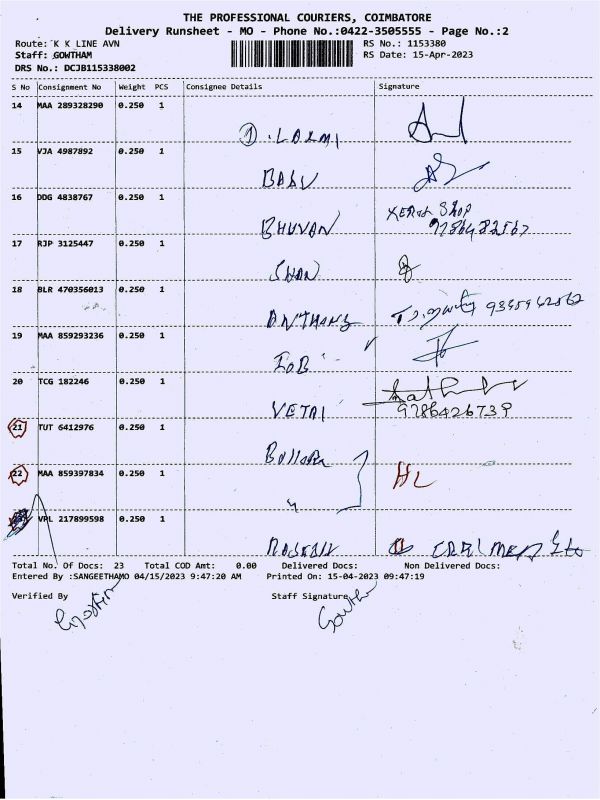 THE PROFESSIONAL COURIERS, COIMBATORE
Delivery Runsheet - MO - Phone No.:0422-3505555 - Page No.:2
Route: K K LINE AVN
RS No.: 1153380
Staff: GOWTHAM
RS Date: 15-Apr-2023
DRS No.: DCJB115338002
S No Consignment No Weight PCS Consignee Details Signature
14 MAA 289328290 0.250 1
15 VJA 4987892 0.250 1
BABU
16 DDG 4838767 0.250 1
XEROX SHOP
BHUVAN
17 RJP 3125447 0.250 1
SHAN
18 BLR 470356013 0.250 1
ANTHONY
19 MAA 859293236 0.250 1
IOB
20 TCG 182246 0.250 1
9786426739
21 TUT 6412976 0.250 1
22 MAA 859397834 0.250 1
HL
VPL 217899598 0.250 1
Total No. Of Docs: 23 Total COD Amt: 0.00 Delivered Docs: Non Delivered Docs:
Entered By :SANGEETHAMO 04/15/2023 9:47:20 AM Printed On: 15-04-2023 09:47:19
Verified By Staff Signature
Gowtham